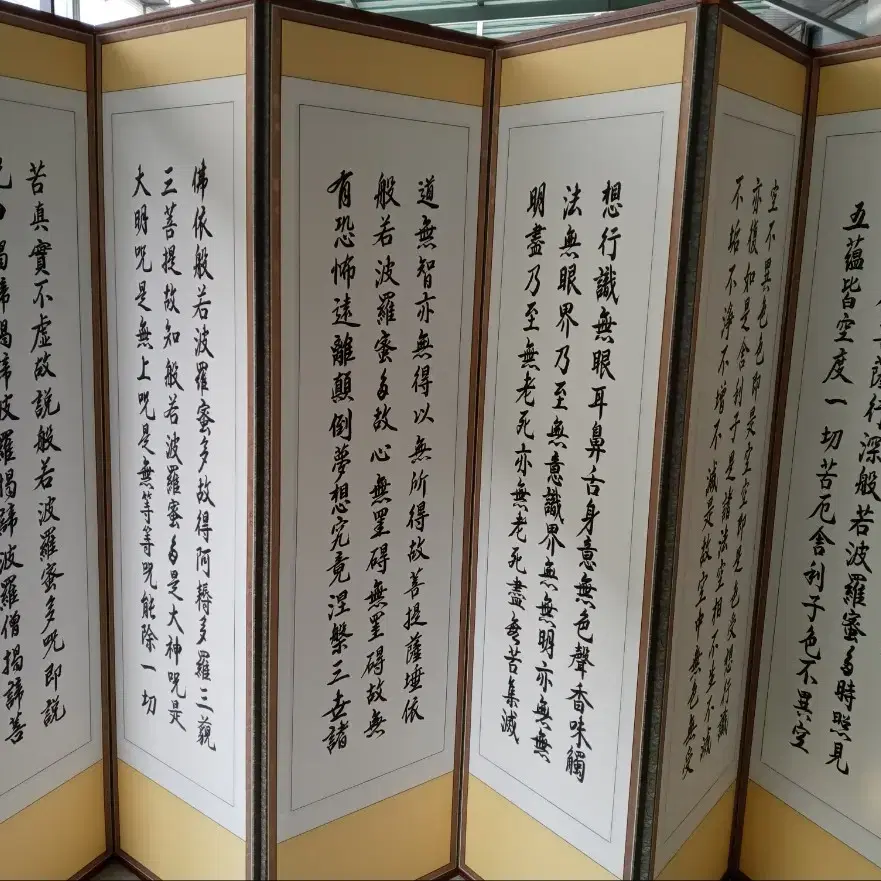 薩行深般若波羅蜜多時照見
五蘊皆空度一切苦厄舍利子色不異空
空不異色色即是空空即是色受想行識
亦復如是舍利子是諸法空相不生不滅
不垢不淨不增不減是故空中無色無受
想行識無眼耳鼻舌身意無色聲香味觸
法無眼界乃至無意識界無無明亦無無
明盡乃至無老死亦無老死盡無苦集滅
道無智亦無得以無所得故菩提薩埵依
般若波羅蜜多故心無罣碍無罣碍故無
有恐怖遠離顛倒夢想究竟涅槃三世諸
佛依般若波羅蜜多故得阿耨多羅三藐
三菩提故知般若波羅蜜多是大神呪是
大明呪是無上呪是無等等呪能除一切
苦真實不虛故説般若波羅蜜多呪即説
揭諦揭諦波羅揭諦波羅僧揭諦菩